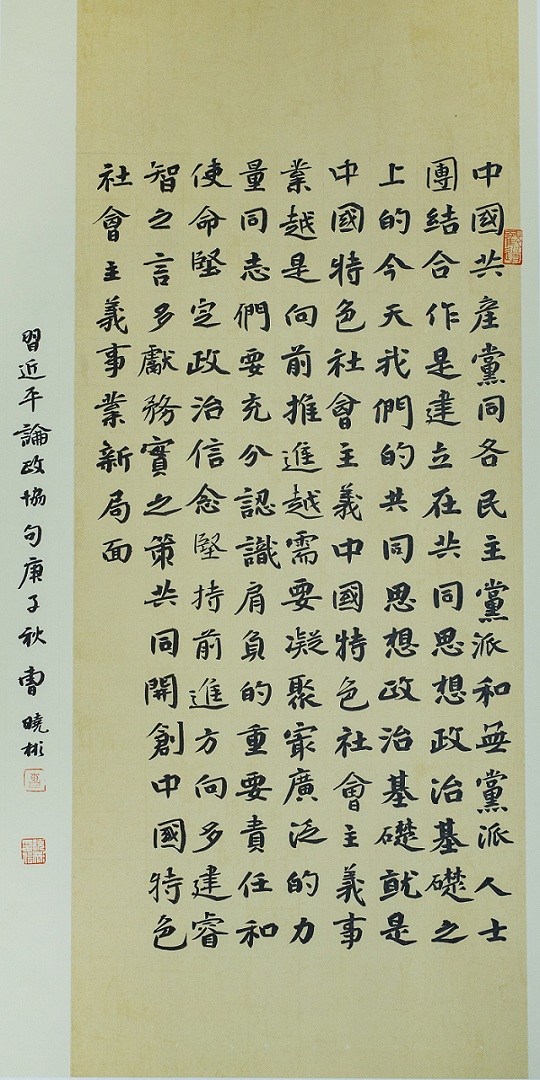 中國共產黨同各民主黨派和無黨派人士
團結合作是建立在共同思想政治基礎之
上的今天我們的共同思想政治基礎就是
中國特色社會主義中國特色社會主義事
業越是向前推進越需要凝聚最廣泛的力
量同志們要充分認識肩負的重要責任和
使命堅定政治信念堅持前進方向多建睿
智之言多獻務實之策共同開創中國特色
社會主義事業新局面
習近平論政協句庚子秋曹曉彬